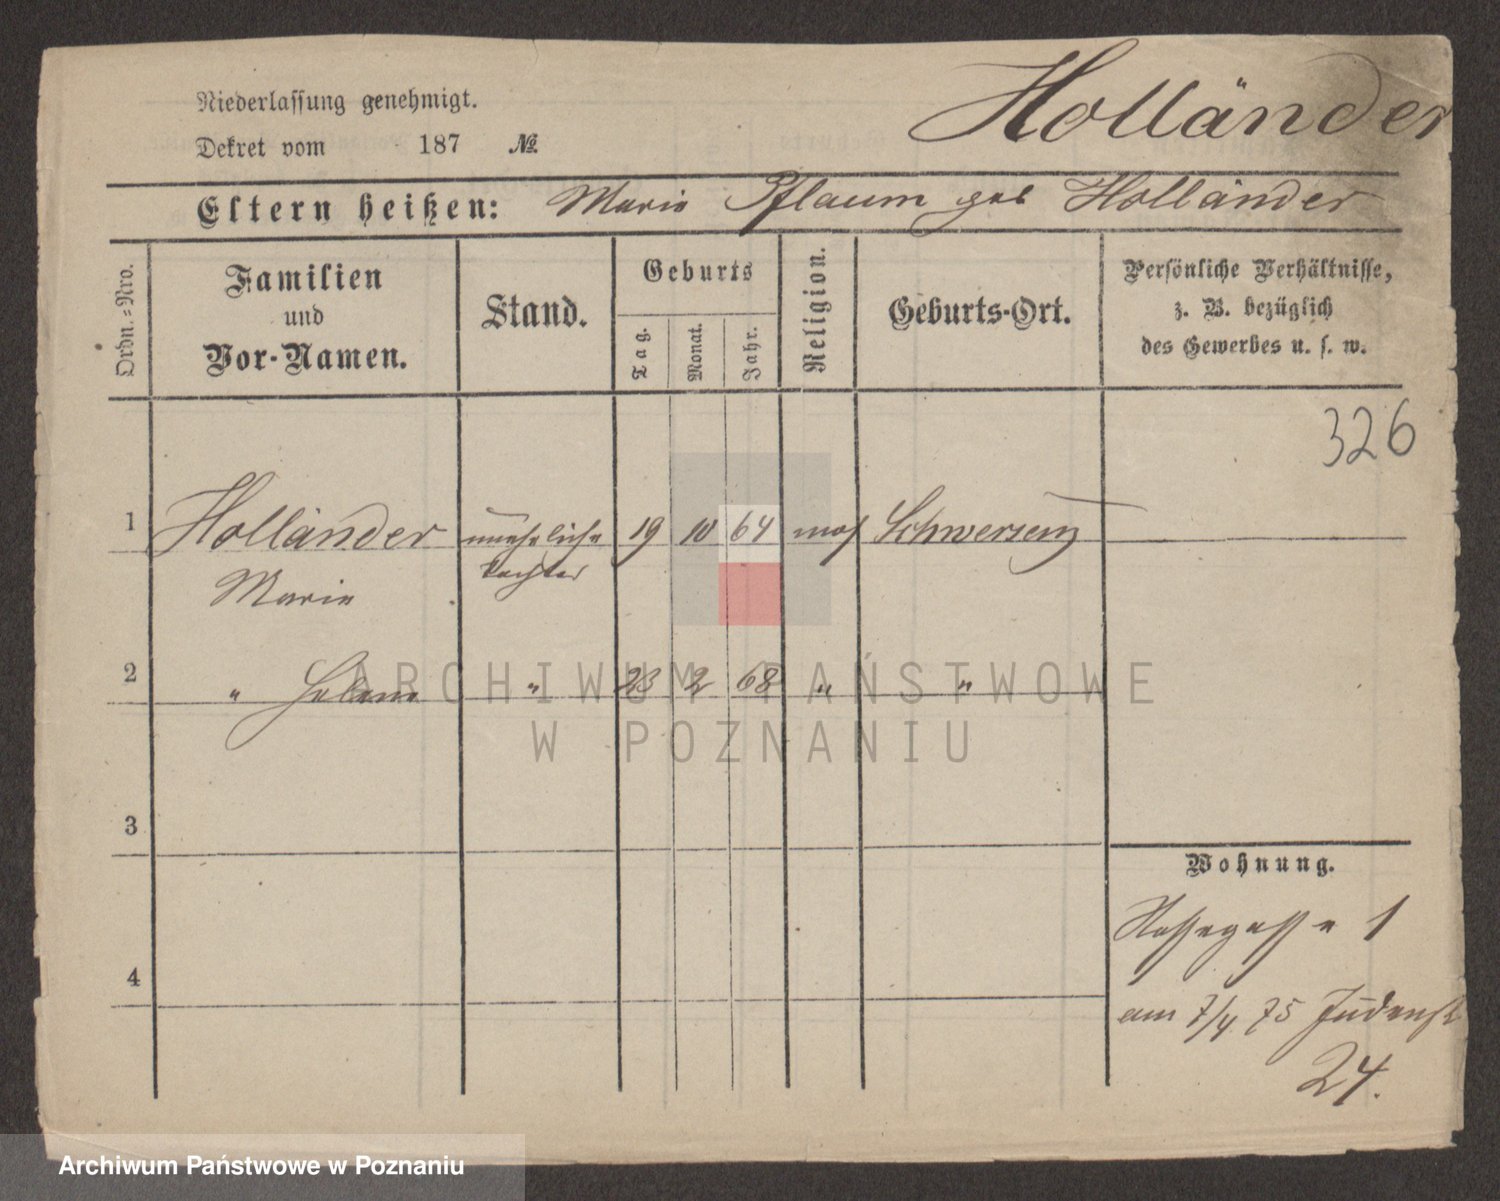 Holländer
Niederlassung genehmigt.
Dekret vom 187 №
Eltern heißen: Marie Pflaum geb Holländer
Ordn.-Nro.
Familien und Vor-Namen.
Stand.
Geburts
Tag.
Monat.
Jahr.
Religion.
Geburts-Ort.
Persönliche Verhältnisse,
z. B. bezüglich
des Gewerbes u. s. w.
326
1 Holländer uneheliche 19 10 64 mos Schwersenz
Marie Tochter
2 " Helene " 23 2 68 " "
3
Wohnung.
1
4
am 7/4 75 Judenstr
24.
ARCHIWUM PAŃSTWOWE
W POZNANIU
Archiwum Państwowe w Poznaniu